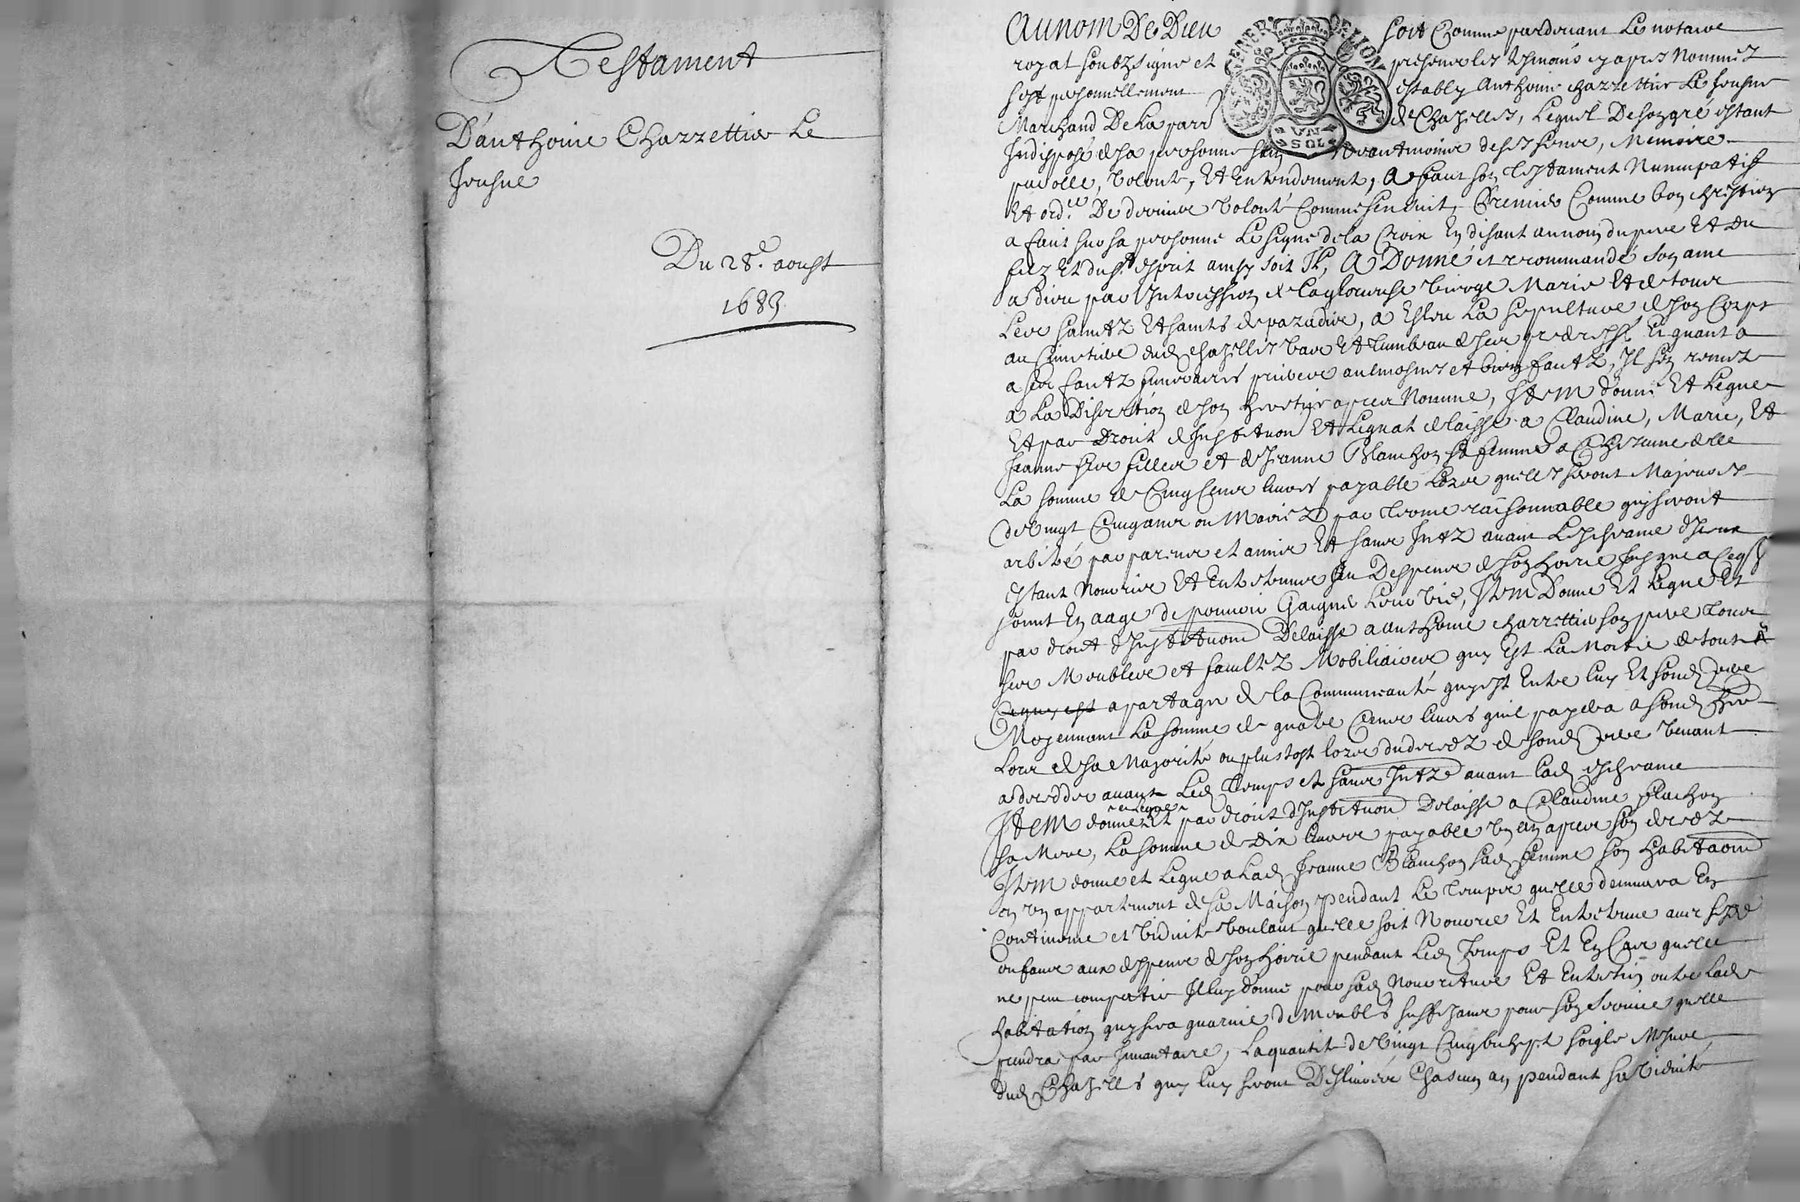 Testament
D'anthoine Chazzettier Le
Jeusne
Du 28e. aoust
1683
Au nom De Dieu soit Comme pardevant Le notaire
royal soubzsigné et presens les tesmoins cy apres Nommez
s'est personnellement estably Anthoine chazzettier Le Jeusne
Marchand De La parr de Chazelles, Lequel De son gré estant
Indisposé de sa personne sain Neantmoins de ses sens, Memoire
parolle, Volonté, Et Entendement, A faict son Testament Nuncupatif
Et ord.ce De derniere Volonté Comme sensuit, Premier Comme bon chrestien
a faict sur sa personne Le signe de la Croix En disant au nom du pere Et du
filz Et du st esprit ainsy soit Il, A Donné et recommandé son ame
a dieu par L'Intercession de La glorieuse Vierge Marie Et de tous
Les saintz Et saints de paradis, a Esleu La sepulture de son Corps
au Cimetiere dud chazelles Vaze Et tumbeau de ses predecess. Et quant a
a ses fraictz funeraires prieres aulmosnes et bien faictz, Il s'en remet
a La Discretion de son heretier apres Nommé, Item donne Et Legue
Et par Droit d'Institution Et Legat delaisse a Claudine, Marie, Et
Jeanne ses filles et de Jeanne Blanchon sa femme a Chacune d'elle
La somme de Cinq Cens livres payable Lors quelles seront Majeures
de Vingt Cinq ans ou Mariez par terme raisonnable quy seront
arbitré par parens et amis Et sans Intz avant L'escheance d'Iceux
Estant Nourries Et Entretenues Au Despens de son hoirie Jusque a ce qu
soient En aage de pouvoir Gaigner Leur Vie, Item Donne Et Legue Et
par droit d'Institution Delaisse a anthoine chazzettier son pere tous
ses Meubles et facultez Mobiliaires quy Est La Moitié de tout
Ce quy est a partager de la Communauté quy est Entre luy Et sond pere
Moyennant La somme de quatre Cens livres quil payera a sond her
Lors de sa Majorité ou plustost lors du decedz de sond pere Venant
a decedder avant Led Temps et sans Intz avant lad escheance
Item donne et legue Et par droit d'Institution Delaisse a Claudine flachon
sa Mere, La somme de Dix livres payable Un an apres son decedz
Item donne et Legue a Lad Jeanne Blanchon sad femme son habitaon
en un appartement de sa Maison pendant Le temps quelle demeurera En
Continence et Viduité Voulant quelle soit Nourie Et Entretenue avec ses
enfans aux despens de son hoirie pendant Led Temps Et En Cas quelle
ne peut compatir Il luy donne pour sad Nourriture Et Entretien outre Lad
habitation quy sera guarnie de Meubles suffizans pour son service quelle
prendra par Inventaire, La quantité de Vingt Cinq bichest soigle Mesure
dud Chazelles quy luy seront Deslivrés Chascun an pendant sa Viduité